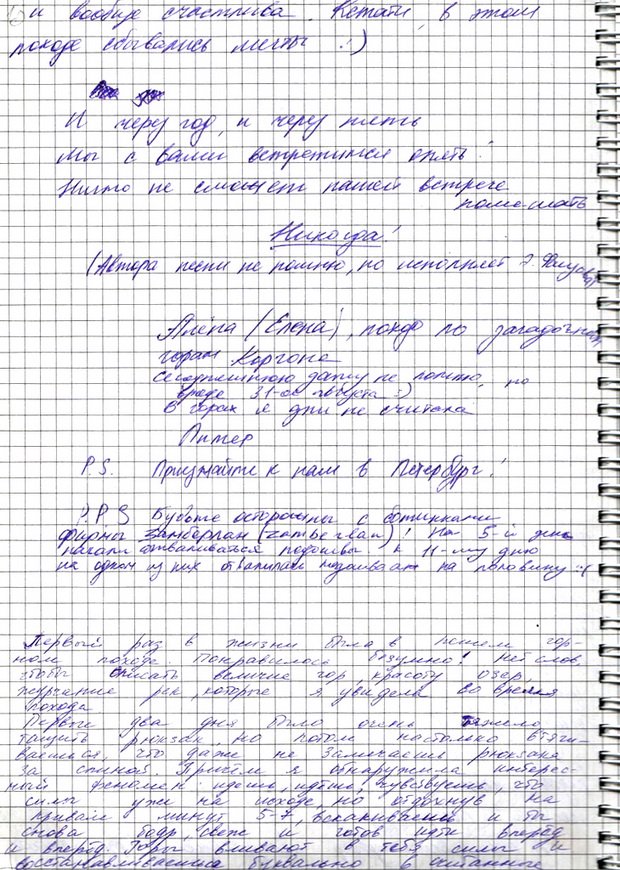 и вообще счастлива. Кстати, в этом
походе сбывались мечты :)
И через год, и через пять
Мы с вами встретимся опять!
Ничто не сможет нашей встрече
помешать
Никогда!
(Автора песни не помню, но исполняет
Алёна (Елена), по загадочным
горам Коргона
Сегодняшнюю дату не помню, но
вроде 31-ое августа :)
В горах я дни не считала
Питер
P.S. Приезжайте к нам в Петербург!
P.P.S Будьте осторожны с ботинками
фирмы Замберлан (zamberlan)! На 5-й день
начали отваливаться подошвы. К 11-му дню
на одном из них отвалилась на половину :(
Первый раз в жизни была в пешем гор-
ном походе. Понравилось безумно! Нет слов,
чтобы описать величие гор, красоту озер,
журчание рек, которые я увидела во время
похода
Первые два дня было очень тяжело
тащить рюкзак, но потом настолько втяги-
ваешься, что даже не замечаешь рюкзака
за спиной. Причём я обнаружила интерес-
ный феномен: идёшь, идёшь, чувствуешь, что
силы уже на исходе, но отдохнув на
привале минут 5-7, вскакиваешь и ты
снова бодр, свеж и готов идти вперед
и вперед. Горы вливают в тебя силы и
восстанавливаешься буквально в считанные